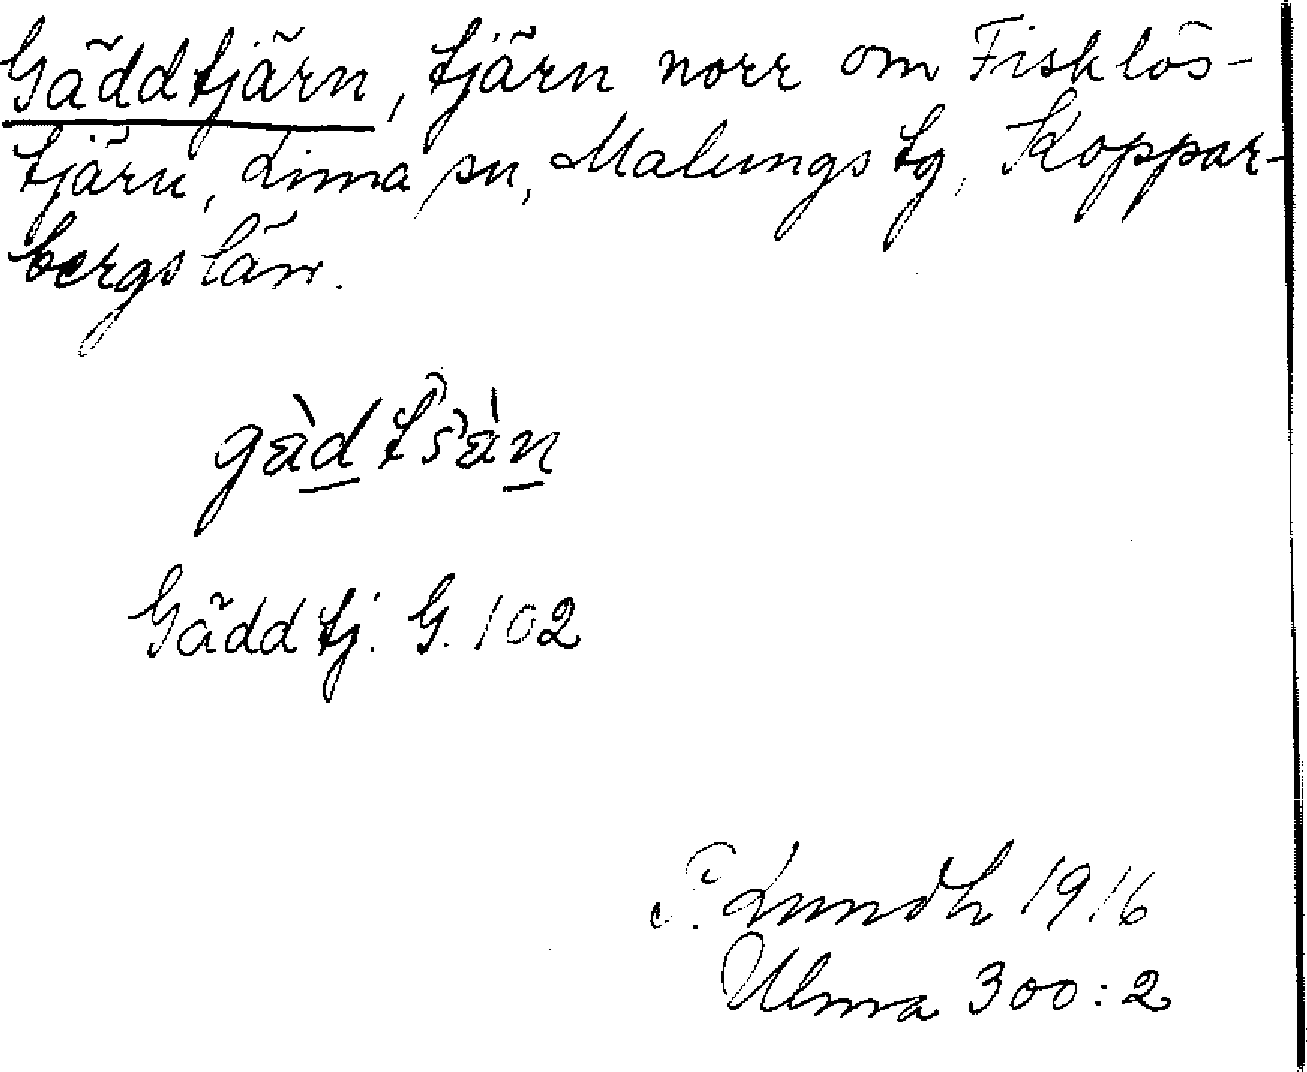 Gäddtjärn, tjärn norr om Fisklös-
tjärn, Lima sn, Malungs tg, Koppar-
bergs län.
gàd tsàn
Gädd tj. G. 102
P. Lundh 1916
Ulma 300:2